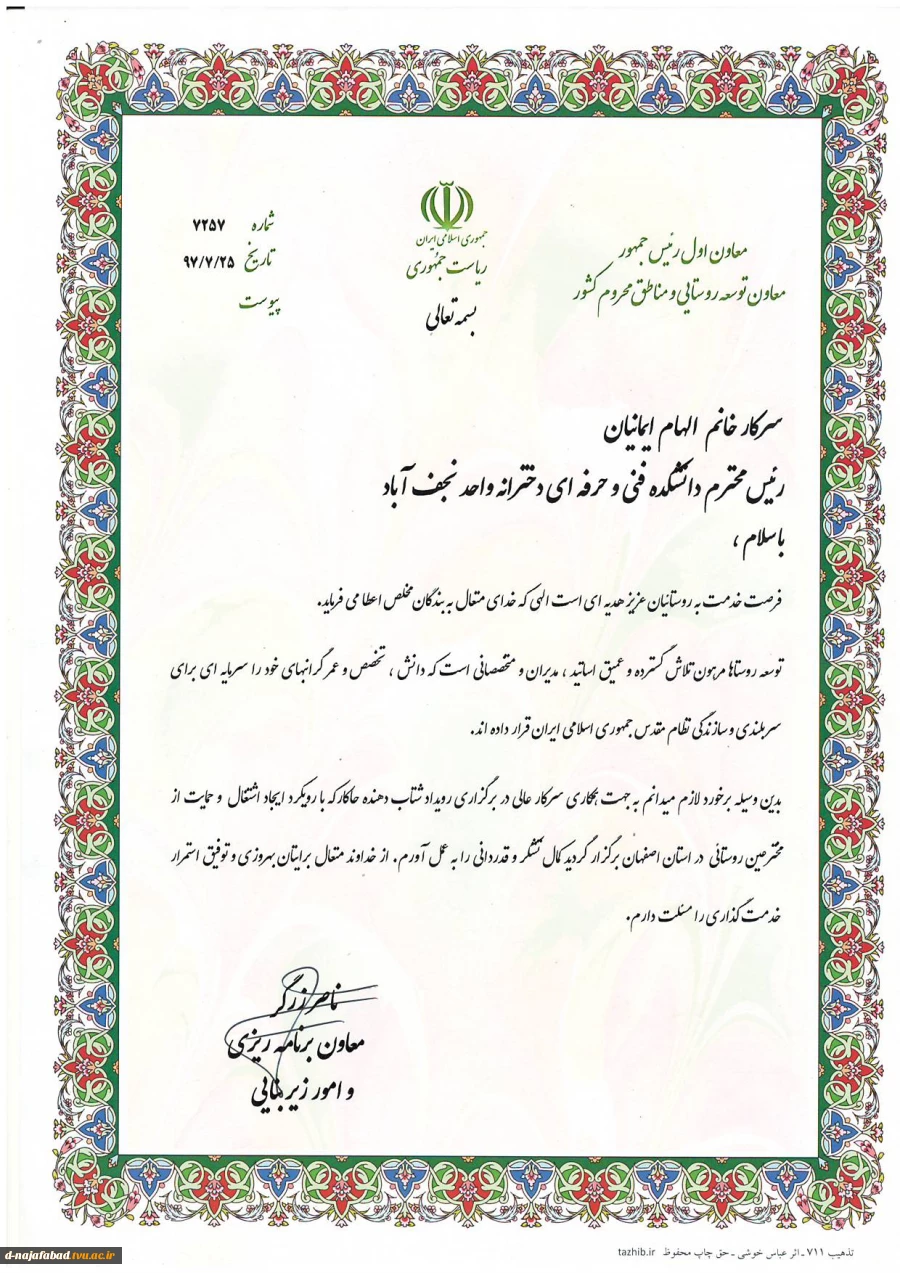 معاون اول رئیس جمهور
معاون توسعه روستایی و مناطق محروم کشور
جمهوری اسلامی ایران
ریاست جمهوری
بسمه تعالی
شماره ۷۲۵۷
تاریخ ۹۷/۷/۲۵
پیوست
سرکار خانم الهام ایمانیان
رئیس محترم دانشکده فنی و حرفه ای دخترانه واحد نجف آباد
باسلام ،
فرصت خدمت به روستائیان عزیز هدیه ای است الهی که خدای متعال به بندگان مخلص اعطا می فرماید.
توسعه روستاها مرهون تلاش گسترده و عمیق اساتید ، مدیران و متخصصانی است که دانش ، تخصص و عمر گرانبهای خود را سرمایه ای برای
سربلندی و سازندگی نظام مقدس جمهوری اسلامی ایران قرار داده اند.
بدین وسیله برخورد لازم میدانم به جهت همکاری سرکار عالی در برگزاری رویداد شتاب دهنده حاکارکه با رویکرد ایجاد اشتغال و حمایت از
محترمین روستائی در استان اصفهان برگزار گردید کمال تشکر و قدردانی را به عمل آورم. از خداوند متعال برایتان بهروزی و توفیق استمرار
خدمت گذاری را مسئلت دارم.
ناصر زرگر
معاون برنامه ریزی
و امور زیربنایی
تذهیب ۷۱۱ ـ اثر عباس خوشی ـ حق چاپ محفوظ tazhib.ir
d-najafabad.tvu.ac.ir